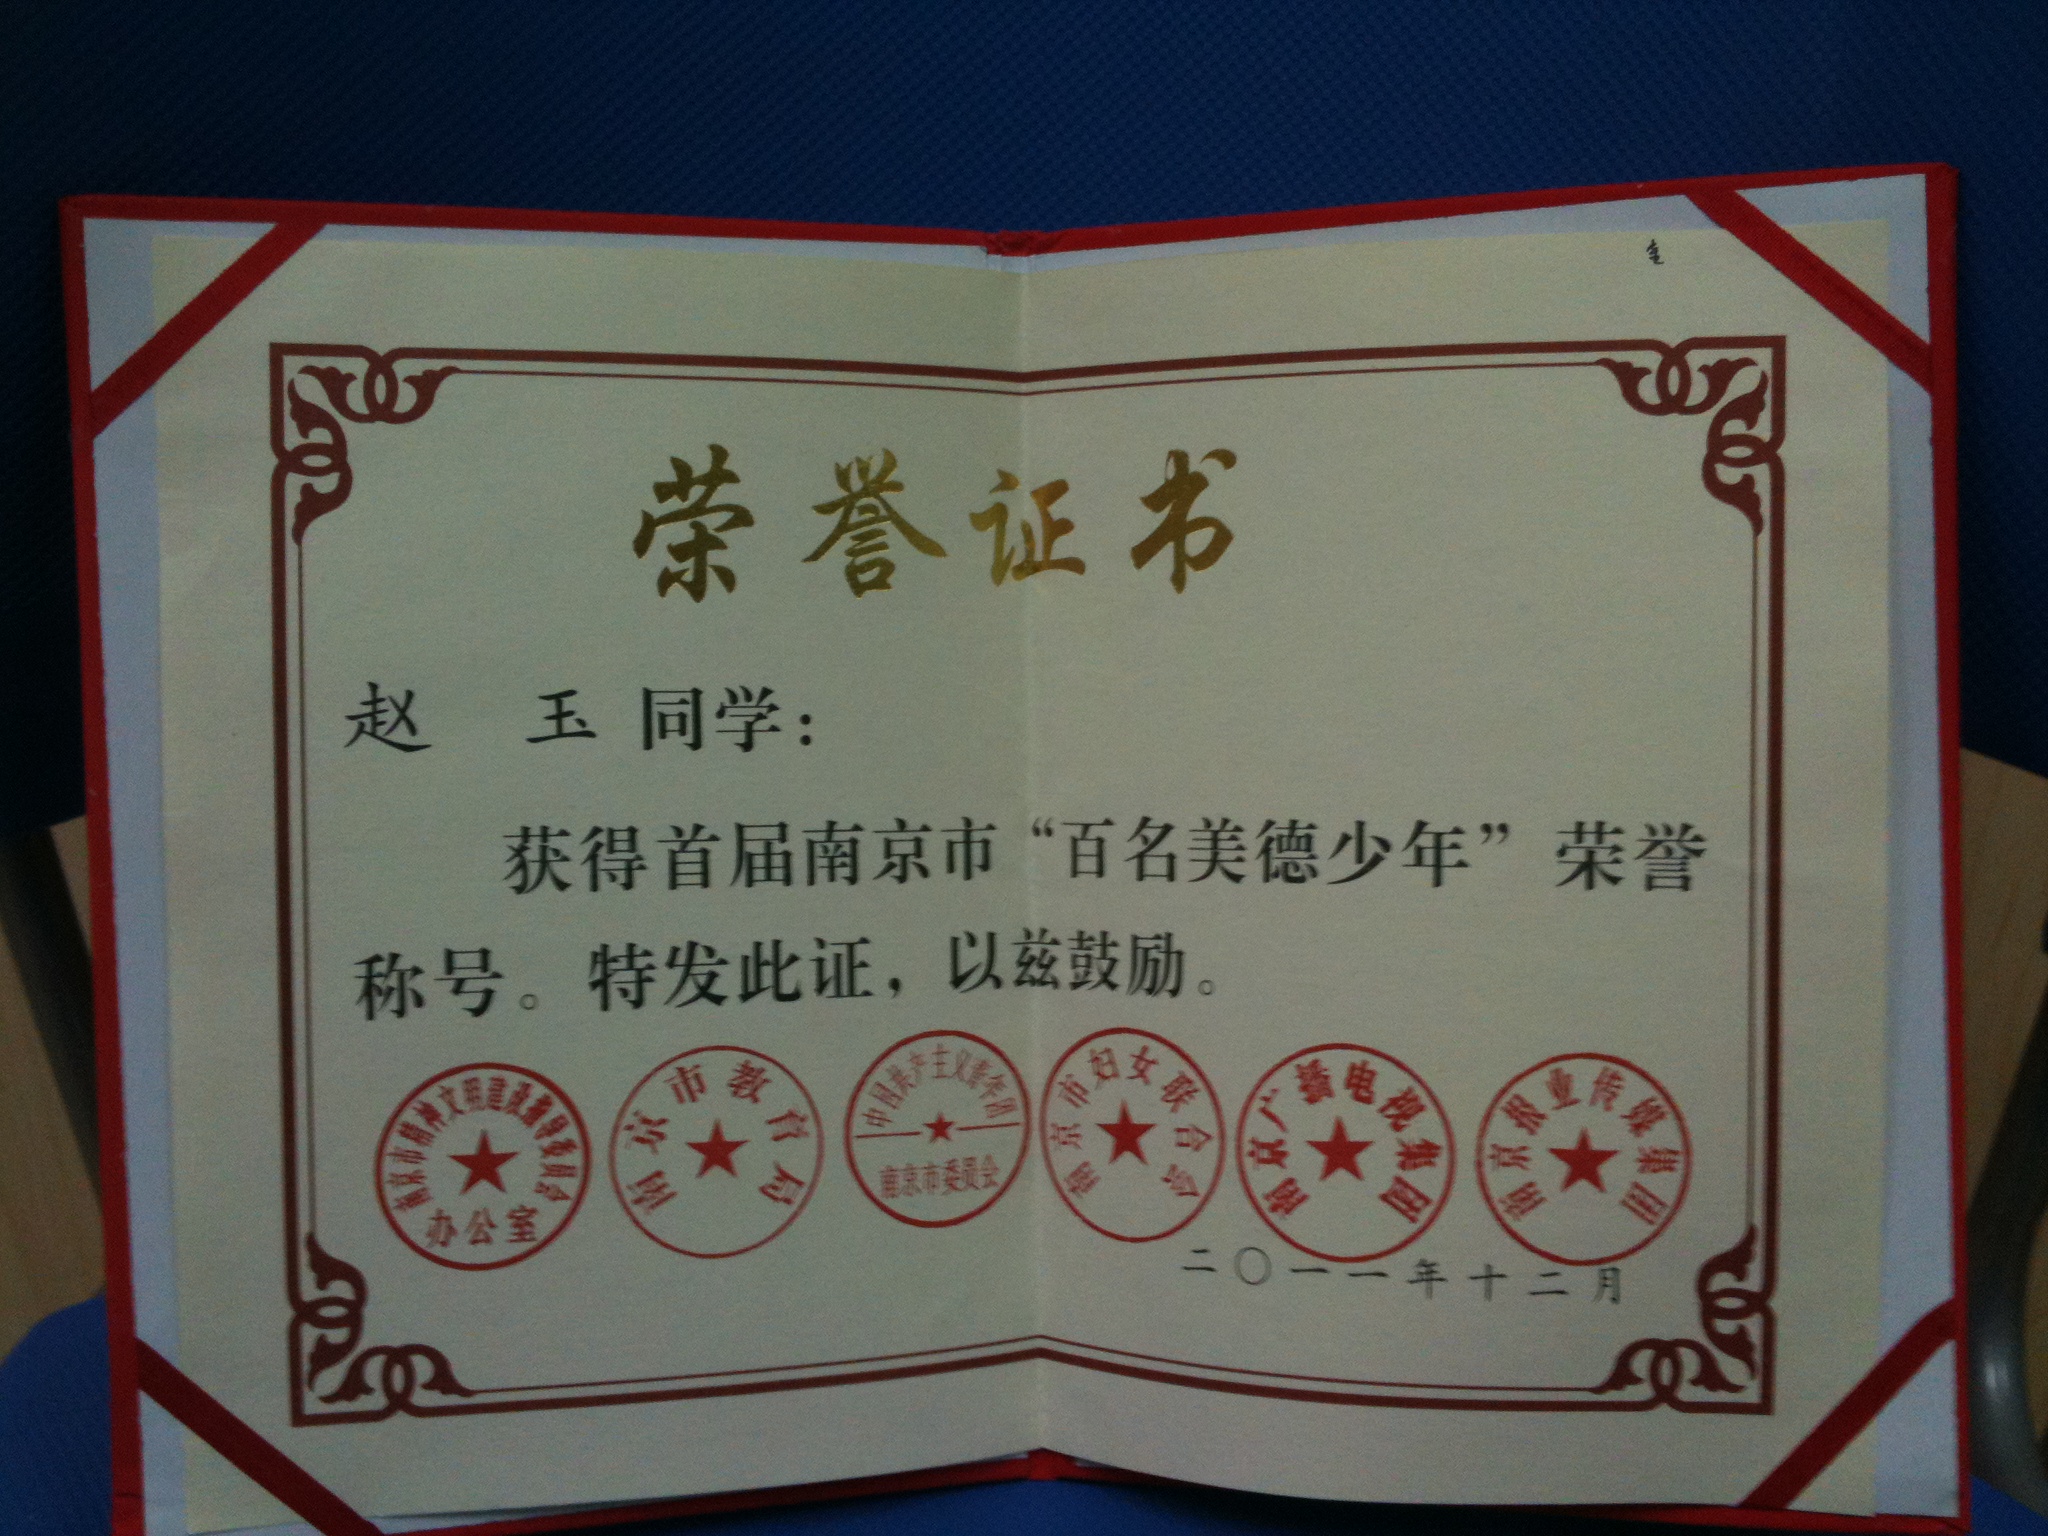 荣誉证书
赵 玉 同学：
获得首届南京市“百名美德少年”荣誉
称号。特发此证，以兹鼓励。
南京市精神文明建设指导委员会
办公室
南京市教育局
中国共产主义青年团
南京市委员会
南京市妇女联合会
南京广播电视集团
南京报业传媒集团
二〇一一年十二月